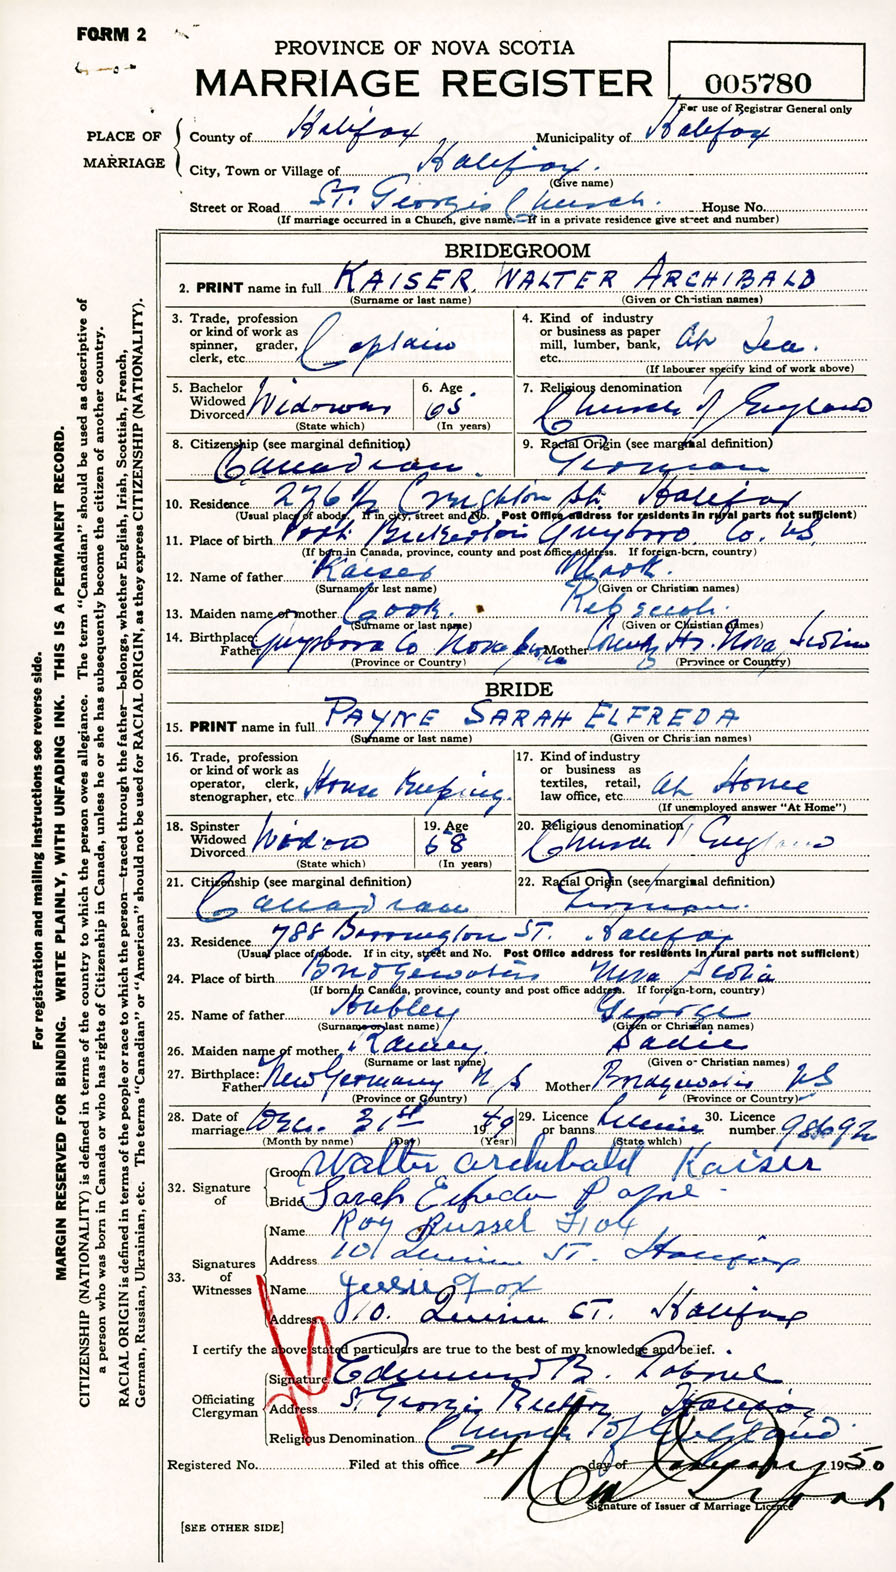 FORM 2
PROVINCE OF NOVA SCOTIA
MARRIAGE REGISTER
005780
For use of Registrar General only
PLACE OF MARRIAGE
County of Halifax Municipality of Halifax
City, Town or Village of Halifax.
(Give name)
Street or Road St. Georges Church. House No.
(If marriage occurred in a Church, give name. If in a private residence give street and number)
BRIDEGROOM
2. PRINT name in full KAISER WALTER ARCHIBALD
(Surname or last name) (Given or Christian names)
3. Trade, profession or kind of work as spinner, grader, clerk, etc. Captain
4. Kind of industry or business as paper mill, lumber, bank, etc. At Sea.
(If labourer specify kind of work above)
5. Bachelor Widowed Divorced Widower
(State which)
6. Age 65
(In years)
7. Religious denomination Church of England
8. Citizenship (see marginal definition) Canadian.
9. Racial Origin (see marginal definition) German
10. Residence 276 1/2 Creighton St. Halifax
(Usual place of abode. If in city, street and No. Post Office address for residents in rural parts not sufficient)
11. Place of birth Port Bickerton Guysboro Co. NS
(If born in Canada, province, county and post office address. If foreign-born, country)
12. Name of father Kaiser
(Surname or last name) (Given or Christian names)
13. Maiden name of mother Cook.
(Surname or last name) (Given or Christian names)
14. Birthplace: Father Guysboro Co Nova Scotia Mother Nova Scotia
(Province or Country) (Province or Country)
BRIDE
15. PRINT name in full PAYNE SARAH ELFREDA
(Surname or last name) (Given or Christian names)
16. Trade, profession or kind of work as operator, clerk, stenographer, etc. House Keeping.
17. Kind of industry or business as textiles, retail, law office, etc. At Home
(If unemployed answer "At Home")
18. Spinster Widowed Divorced Widow
(State which)
19. Age 68
(In years)
20. Religious denomination Church of England
21. Citizenship (see marginal definition) Canadian
22. Racial Origin (see marginal definition) German.
23. Residence 788 Barrington St. Halifax
(Usual place of abode. If in city, street and No. Post Office address for residents in rural parts not sufficient)
24. Place of birth Bridgewater Nova Scotia
(If born in Canada, province, county and post office address. If foreign-born, country)
25. Name of father Hubley George
(Surname or last name) (Given or Christian names)
26. Maiden name of mother Ramey Sadie
(Surname or last name) (Given or Christian names)
27. Birthplace: Father New Germany N S Mother Bridgewater NS
(Province or Country) (Province or Country)
28. Date of marriage Dec. 31st 1949
(Month by name) (Day) (Year)
29. Licence or banns License
(State which)
30. Licence number
32. Signature of
Groom Walter Archibald Kaiser
Bride Sarah Elfreda Payne
33. Signatures of Witnesses
Name Roy Russel Fox
Address 10 St. Halifax
Name Fox
Address 10. St. Halifax
I certify the above stated particulars are true to the best of my knowledge and belief.
Officiating Clergyman
Signature Edmund B.
Address St Georges Rectory Halifax
Religious Denomination Church of England.
Registered No. Filed at this office day of 1950
Signature of Issuer of Marriage Licence
[SEE OTHER SIDE]
For registration and mailing instructions see reverse side.
MARGIN RESERVED FOR BINDING. WRITE PLAINLY, WITH UNFADING INK. THIS IS A PERMANENT RECORD.
CITIZENSHIP (NATIONALITY) is defined in terms of the country to which the person owes allegiance. The term "Canadian" should be used as descriptive of
a person who was born in Canada or who has rights of Citizenship in Canada, unless he or she has subsequently become the citizen of another country.
RACIAL ORIGIN is defined in terms of the people or race to which the person—traced through the father—belongs, whether English, Irish, Scottish, French,
German, Russian, Ukrainian, etc. The terms "Canadian" or "American" should not be used for RACIAL ORIGIN, as they express CITIZENSHIP (NATIONALITY).